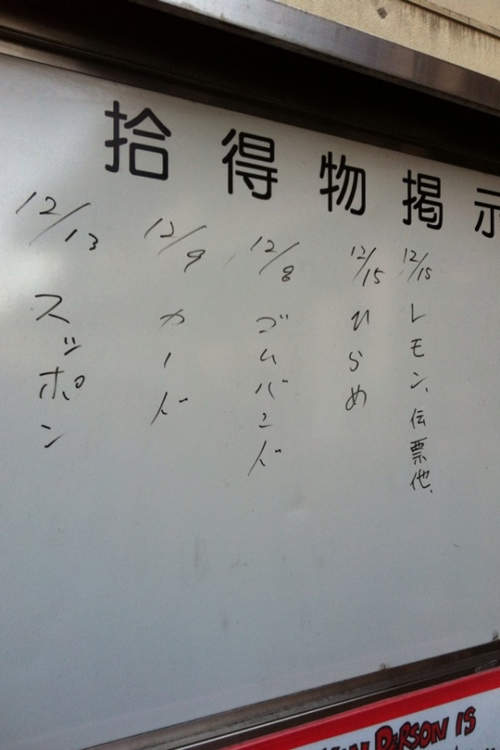 拾得物掲示
12/15 レモン、伝票他、
12/15 ひらめ
12/8 ゴムバンド
12/9 カード
12/13 スッポン
PERSON IS